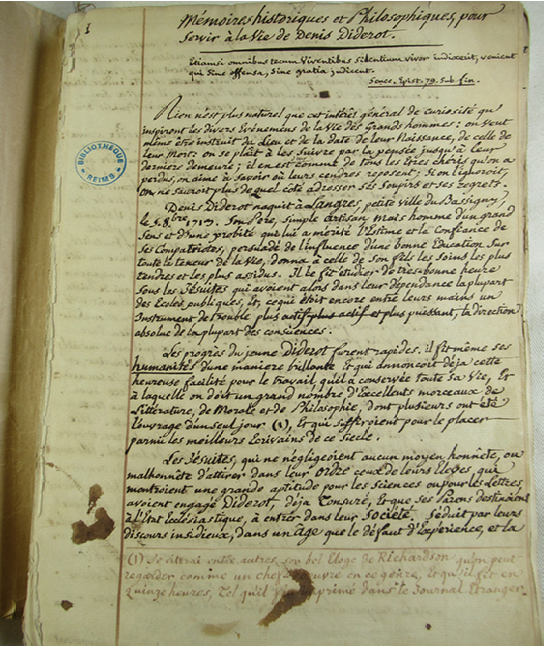 1
Mémoires historiques et Philosophiques, pour
Servir à la Vie de Denis Diderot.
Etiamsi omnibus tecum Viventibus silentium livor indixerit, venient
qui Sine offensa, Sine gratia judicent.
Senec. Epist. 79. Sub fin.
Rien n'est plus naturel que cet intérêt général de curiosité qu'
inspirent les divers Evénemens de la Vie des grands hommes: on veut
même être instruit du Lieu et de la Date de leur Naissance, de celle de
leur Mort: on se plaît à les Suivre par la pensée jusqu'à leur
derniere demeure; il en est comme de tous les Etres chéris qu'on a
perdus, on aime à Savoir où leurs cendres reposent; Si on l'ignoroit,
on ne Sauroit plus de quel côté adresser ses Soupirs et ses regrets.
Denis Diderot naquit à Langres, petite Ville du Bassigny,
le 5. 8.bre 1713. Son Pere, Simple artisan, mais homme d'un grand
Sens et d'une probité qui lui a mérité l'Estime et la Confiance de
Ses Compatriotes, persuadé de l'influence d'une bonne Education Sur
toute la teneur de la Vie, donna à celle de Son fils les Soins les plus
tendres et les plus assidus. Il le fit étudier de très-bonne heure
Sous les Jésuites qui avoient alors dans leur dépendance la plupart
des Ecoles publiques, et, ce qui étoit encore entre leurs mains un
instrument de trouble plus actif plus actif et plus puissant, la direction
absolue de la plupart des consciences.
Les progrès du jeune Diderot furent rapides. il fit même ses
humanités d'une maniere brillante Et qui annonçoit déja cette
heureuse facilité pour le travail qu'il a conservée toute Sa Vie, Et
à laquelle on doit un grand nombre d'Excellents morceaux de
Littérature, de Morale et de Philosophie, dont plusieurs ont été
l'ouvrage d'un seul jour (1), Et qui Suffiroient pour le placer
parmi les meilleurs Ecrivains de ce Siecle.
Les Jésuites, qui ne négligeoient aucun moyen honnête, ou
malhonnête d'attirer dans leur Ordre ceux de leurs Eleves, qui
montroient une grande aptitude pour les Sciences ou pour les Lettres,
avoient engagé Diderot, déja Tonsuré, Et que Ses Parens destinoient
à l'Etat Ecclésiastique, à entrer dans leur Société. Séduit par leurs
discours insidieux, dans un Age que le défaut d'Expérience, et la
(1) Je citerai entre autres son bel Eloge de Richardson qu'on peut
regarder comme un chef d'œuvre en ce genre, Et qu'il fit en
quinze heures, Tel qu'il imprimé dans le Journal Etranger.
BIBLIOTHÈQUE
REIMS